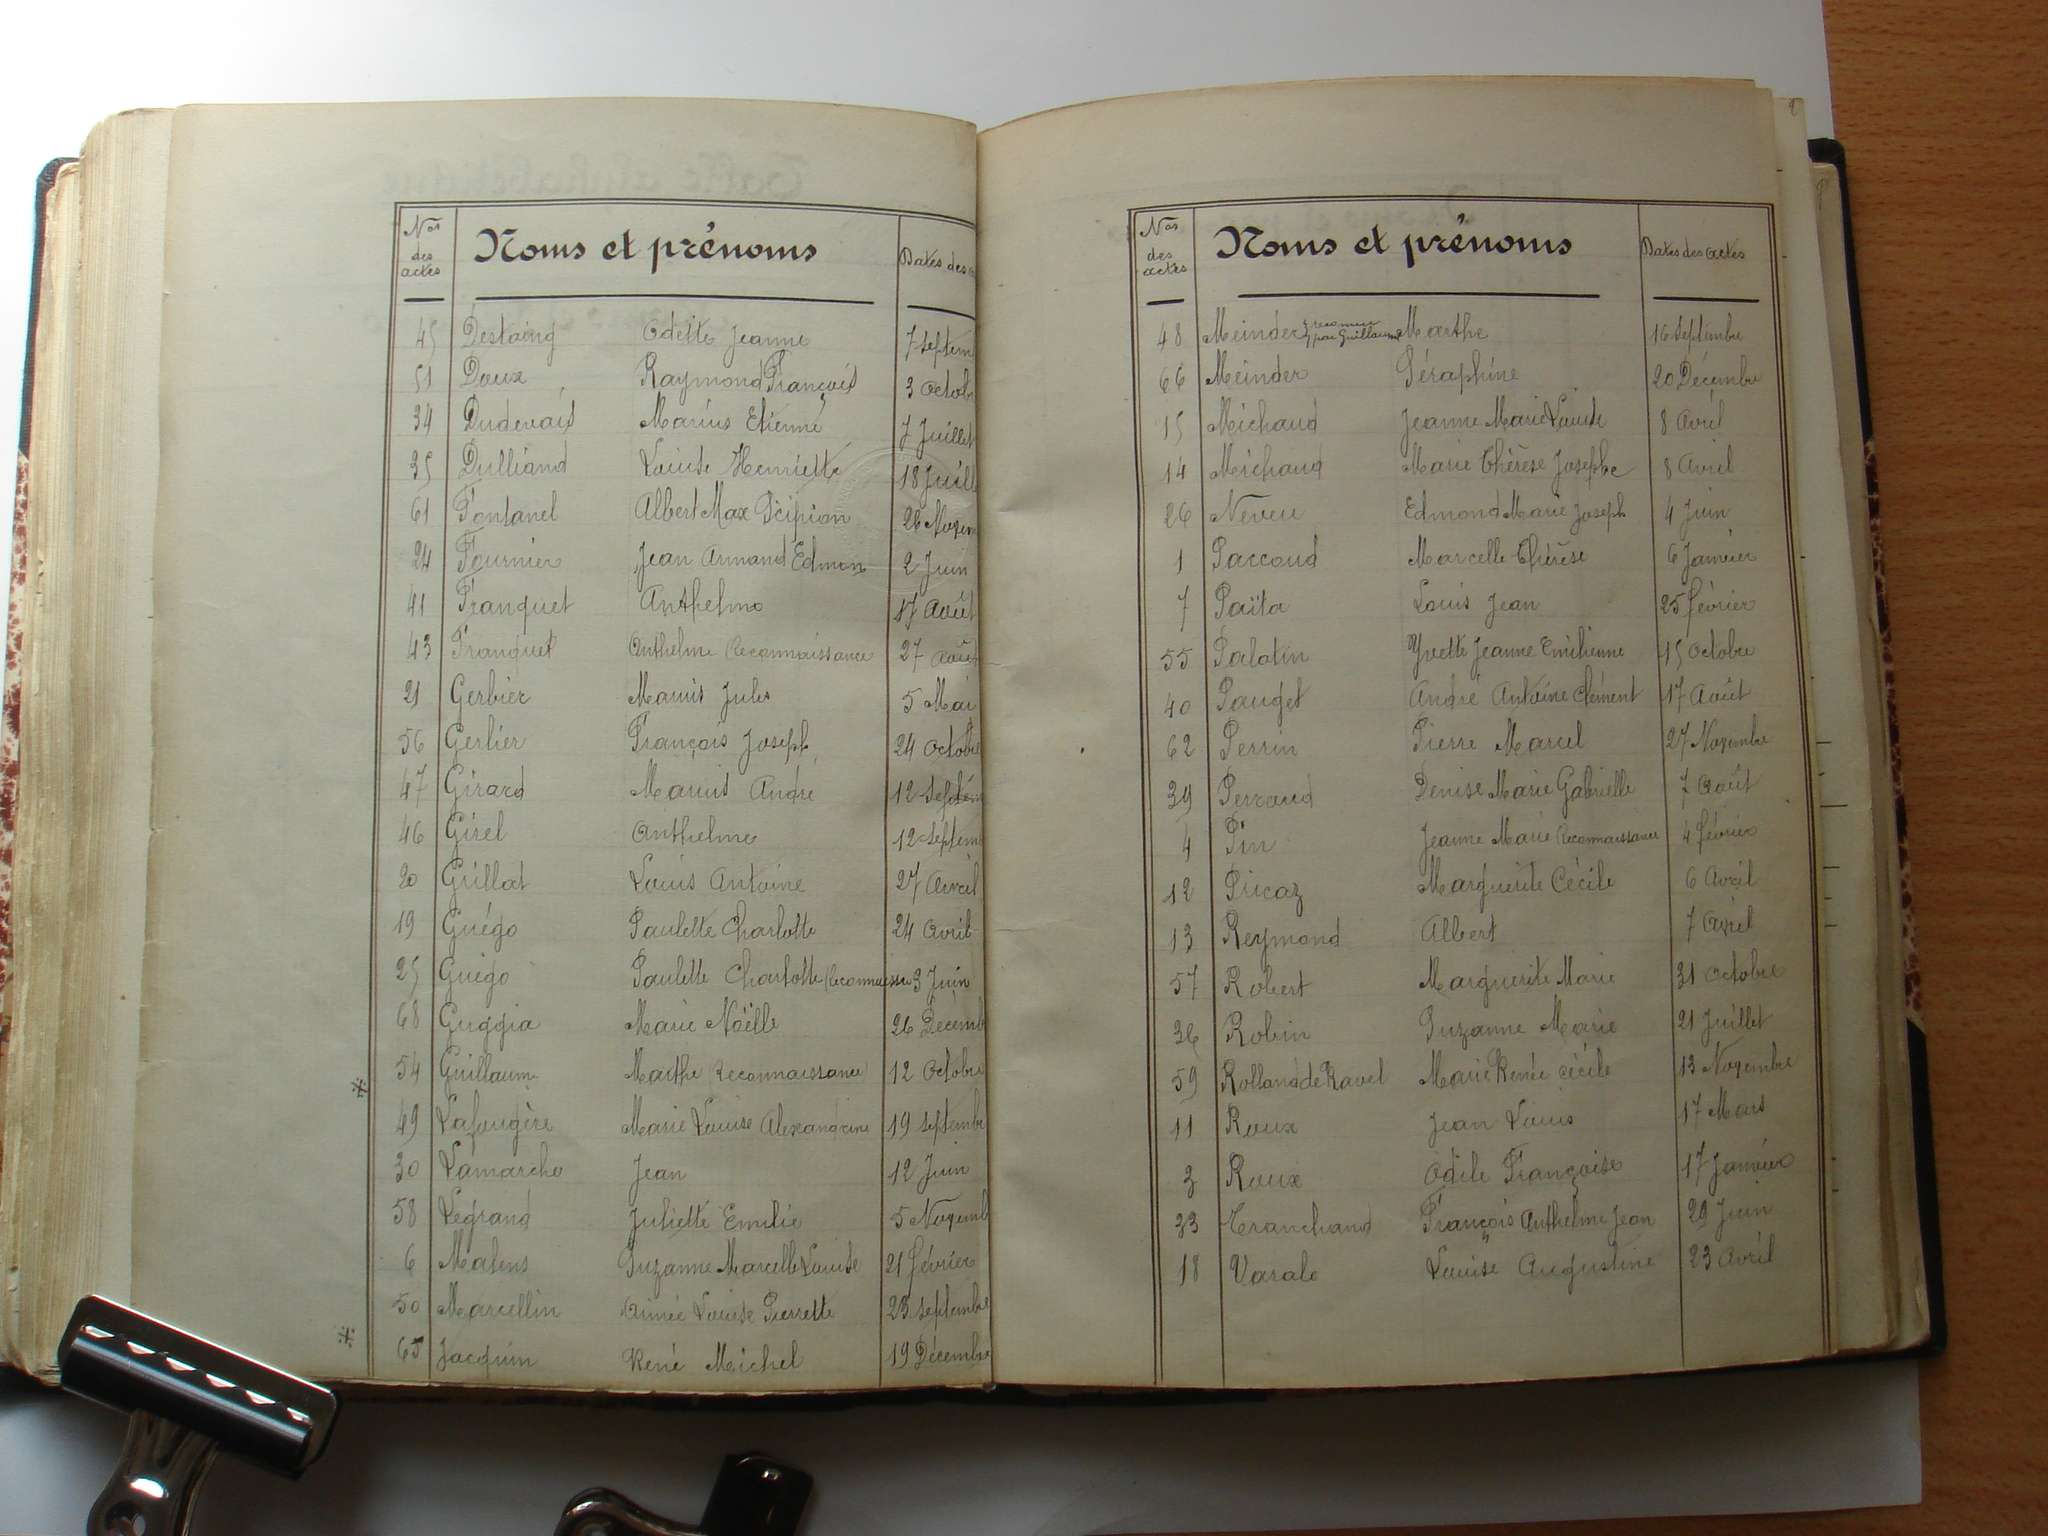 Nos des actes Noms et prénoms Dates des
45 Destaing Odette Jeanne 7 septem
51 Doux Raymond François 3 Octob
34 Dudevais Marius Etienne 7 Juillet
35 Dulliand Louise Henriette 18 Juill
61 Fontanel Albert Max Scipion 26 Novem
24 Fournier Jean Armand Edmon 2 Juin
41 Franquet Anthelme 17 Août
43 Franquet Anthelme Reconnaissance 27 Août
21 Gerbier Marius Jules 5 Mai
56 Gerlier François Joseph 24 Octobre
47 Girard Marius André 12 septem
46 Girel Anthelme 12 septem
20 Grillat Louis Antoine 27 Avril
19 Guégo Paulette Charlotte 24 Avril
25 Guégo Paulette Charlotte (reconnaiss 3 Juin
68 Guggia Marie Noëlle 26 Décemb
54 Guillaume Marthe (reconnaissance) 12 Octobre
49 Lafougère Marie Louise Alexandrine 19 septembr
30 Lamarche Jean 12 Juin
58 Legrand Juliette Emilie 5 Novemb
6 Malens Suzanne Marcelle Louise 21 février
50 Marcellin Aimée Louise Pierrette 23 septembre
65 Jacquin René Michel 19 Décembre
Nos des actes Noms et prénoms Dates des actes
48 Meinder reconnue par Guillaume Marthe 16 septembre
66 Meinder Séraphine 20 Décembre
15 Michaud Jeanne Marie Louise 8 Avril
14 Michaud Marie Thérèse Josephe 8 Avril
26 Neveu Edmond Marie Joseph 4 Juin
1 Paccoud Marcelle Thérèse 6 Janvier
7 Païta Louis Jean 25 février
55 Palatin Yvette Jeanne Emilienne 15 Octobre
40 Pauget André Antoine Clément 17 Août
62 Perrin Pierre Marcel 27 Novembre
39 Perraud Denise Marie Gabrielle 7 Août
4 Pin Jeanne Marie Reconnaissance 4 février
12 Pricaz Marguerite Cécile 6 Avril
13 Reymond Albert 7 Avril
57 Robert Marguerite Marie 31 Octobre
36 Robin Suzanne Marie 21 Juillet
59 Rolland de Ravel Marie Renée Cécile 13 Novembre
11 Roux Jean Louis 17 Mars
3 Roux Odile Françoise 17 Janvier
33 Tranchand François Anthelme Jean 29 Juin
18 Varale Louise Augustine 23 Avril